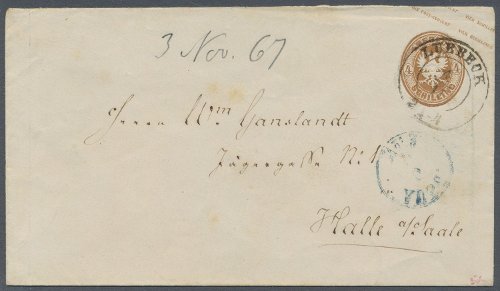 3 Nov. 67
LUEBECK
SCHILLING
Herrn Wm Ganslandt
Jägergasse No 1
Halle a/Saale